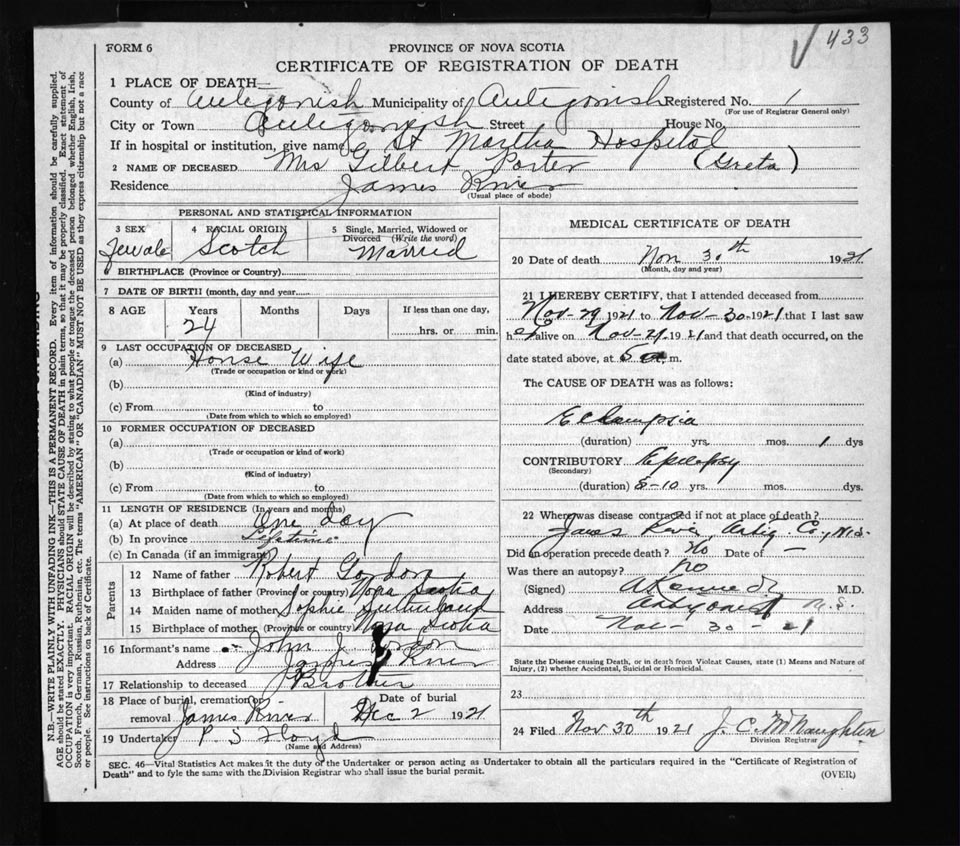 433
FORM 6
PROVINCE OF NOVA SCOTIA
CERTIFICATE OF REGISTRATION OF DEATH
1 PLACE OF DEATH—
County of Antigonish Municipality of Antigonish Registered No. 1
(For use of Registrar General only)
City or Town Antigonish Street House No.
If in hospital or institution, give name St Martha Hospital
2 NAME OF DECEASED Mrs Gilbert Porter (Greta)
Residence James River
(Usual place of abode)
PERSONAL AND STATISTICAL INFORMATION
3 SEX 4 RACIAL ORIGIN 5 Single, Married, Widowed or
Divorced (Write the word)
Female Scotch Married
6 BIRTHPLACE (Province or Country)
7 DATE OF BIRTH (month, day and year
8 AGE Years Months Days If less than one day,
24 hrs. or min.
9 LAST OCCUPATION OF DECEASED
(a) House Wife
(Trade or occupation or kind or work)
(b)
(Kind of industry)
(c) From to
(Date from which to which so employed)
10 FORMER OCCUPATION OF DECEASED
(a)
(Trade or occupation or kind of work)
(b)
(Kind of industry)
(c) From to
(Date from which to which so employed)
11 LENGTH OF RESIDENCE (In years and months)
(a) At place of death One day
(b) In province Lifetime
(c) In Canada (if an immigrant)
Parents
12 Name of father Robert Gordon
13 Birthplace of father (Province or country) Nova Scotia
14 Maiden name of mother Sophie Sutherland
15 Birthplace of mother (Province or country) Nova Scotia
16 Informant's name John J. Gordon
Address James River
17 Relationship to deceased Brother
18 Place of burial, cremation or Date of burial
removal James River Dec 2 1921
19 Undertaker P S Floyd
(Name and Address)
MEDICAL CERTIFICATE OF DEATH
20 Date of death Nov 30th 1921
(Month, day and year)
21 I HEREBY CERTIFY, that I attended deceased from
Nov-29 1921 to Nov-30-1921 that I last saw
her alive on Nov-29. 1921 and that death occurred, on the
date stated above, at 5 a. m.
The CAUSE OF DEATH was as follows:
Eclampsia
(duration) yrs. mos. 1 dys
CONTRIBUTORY Epilepsy
(Secondary)
(duration) 8-10 yrs. mos. dys.
22 Where was disease contracted if not at place of death?
James River Antig. Co., N.S.
Did an operation precede death? No Date of —
Was there an autopsy? No
(Signed) A Kennedy M.D.
Address Antigonish N.S.
Date Nov- 30 - 21
State the Disease causing Death, or in death from Violeat Causes, state (1) Means and Nature of
Injury, (2) whether Accidental, Suicidal or Homicidal.
23
24 Filed Nov 30th 1921 J. C. McNaughton
Division Registrar
SEC. 46—Vital Statistics Act makes it the duty of the Undertaker or person acting as Undertaker to obtain all the particulars required in the "Certificate of Registration of
Death" and to fyle the same with the Division Registrar who shall issue the burial permit.
(OVER)
N.B.—WRITE PLAINLY WITH UNFADING INK—THIS IS A PERMANENT RECORD. Every item of information should be carefully supplied.
AGE should be stated EXACTLY. PHYSICIANS should STATE CAUSE OF DEATH in plain terms, so that it may be properly classified. Exact statement of
OCCUPATION is very important. RACIAL ORIGIN will be described by stating to what people or tongue the deceased person belonged whether English, Irish,
Scotch, French, German, Russian, Ruthenian, etc. The terms "AMERICAN" OR "CANADIAN" MUST NOT BE USED as they express citizenship but not a race
or people. See instructions on back of Certificate.